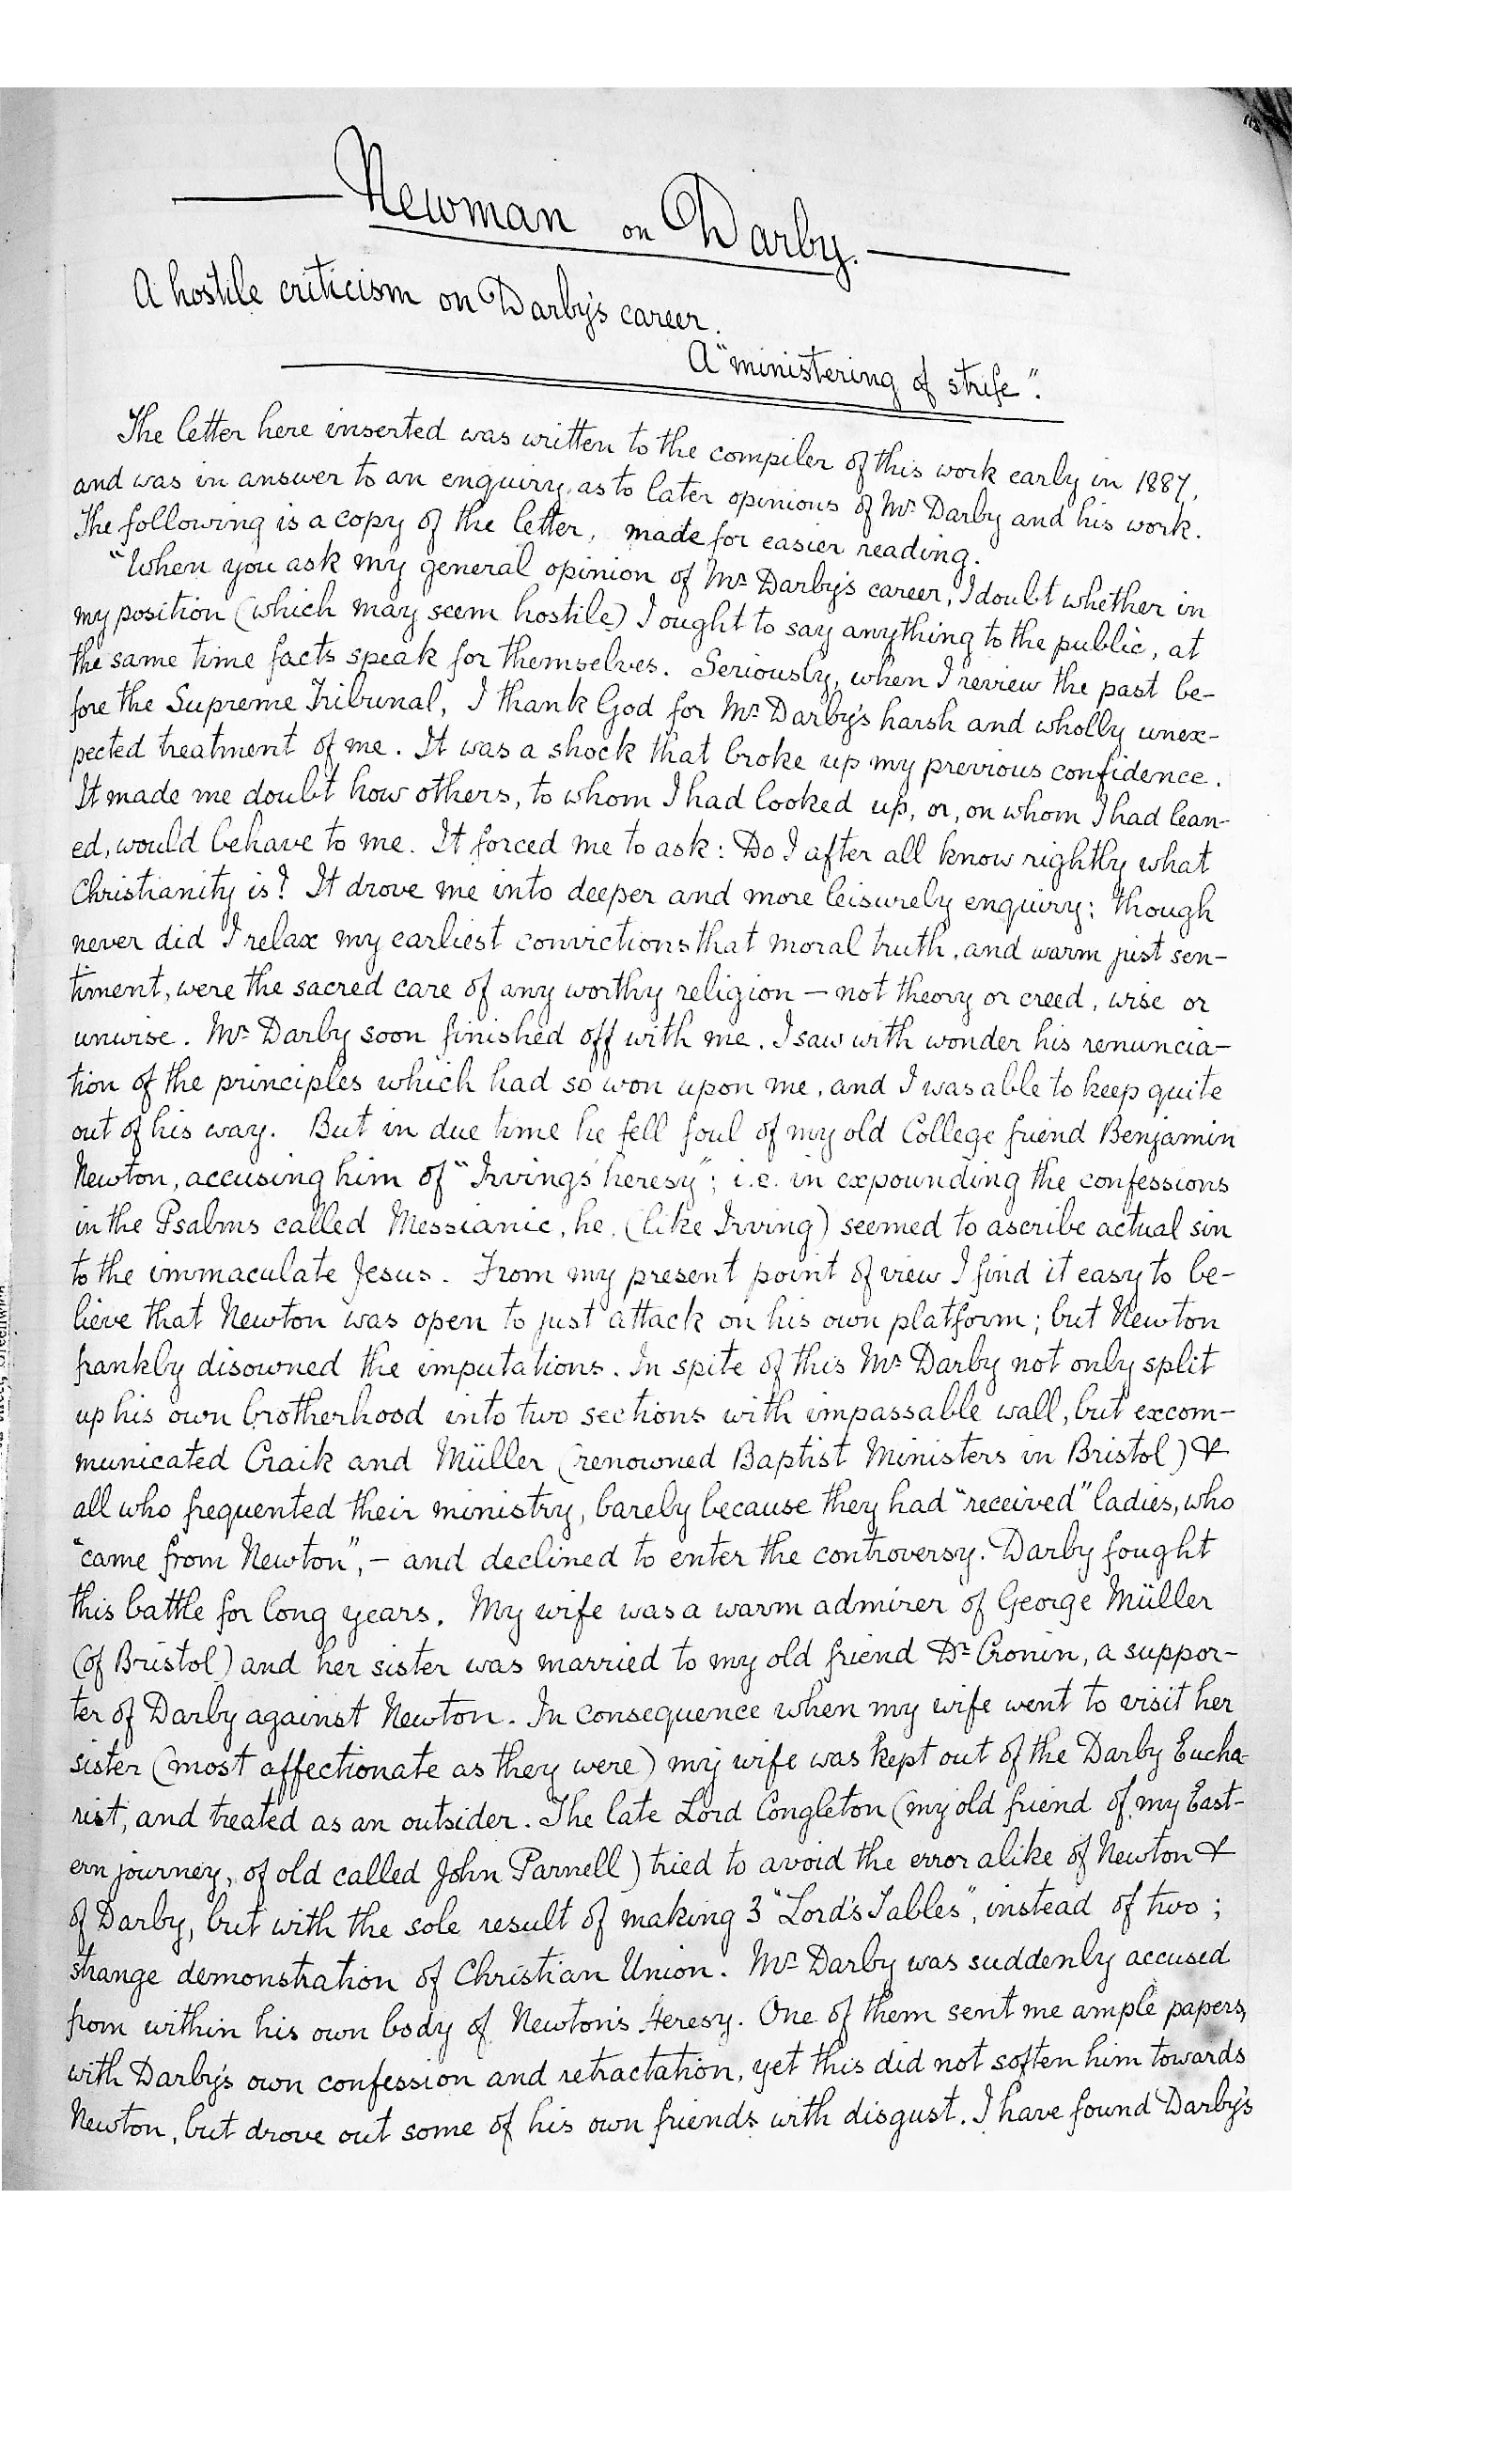 Newman on Darby.
A hostile criticism on Darby's career.
A "ministering of strife".
The letter here inserted was written to the compiler of this work early in 1887,
and was in answer to an enquiry, as to later opinions of Mr Darby and his work.
The following is a copy of the letter, made for easier reading.
"When you ask my general opinion of Mr Darby's career, I doubt whether in
my position (which may seem hostile) I ought to say anything to the public, at
the same time facts speak for themselves. Seriously, when I review the past be-
fore the Supreme Tribunal, I thank God for Mr Darby's harsh and wholly unex-
pected treatment of me. It was a shock that broke up my previous confidence.
It made me doubt how others, to whom I had looked up, or, on whom I had lean-
ed, would behave to me. It forced me to ask: Do I after all know rightly what
Christianity is? It drove me into deeper and more leisurely enquiry; though
never did I relax my earliest convictions that moral truth, and warm just sen-
timent, were the sacred care of any worthy religion — not theory or creed, wise or
unwise. Mr Darby soon finished off with me. I saw with wonder his renuncia-
tion of the principles which had so won upon me, and I was able to keep quite
out of his way. But in due time he fell foul of my old College friend Benjamin
Newton, accusing him of "Irving's heresy"; i.e. in expounding the confessions
in the Psalms called Messianic, he, (like Irving) seemed to ascribe actual sin
to the immaculate Jesus. From my present point of view I find it easy to be-
lieve that Newton was open to just attack on his own platform; but Newton
frankly disowned the imputations. In spite of this Mr Darby not only split
up his own brotherhood into two sections with impassable wall, but excom-
municated Craik and Müller (renowned Baptist Ministers in Bristol) &
all who frequented their ministry, barely because they had "received" ladies, who
"came from Newton", — and declined to enter the controversy. Darby fought
this battle for long years. My wife was a warm admirer of George Müller
(of Bristol) and her sister was married to my old friend Dr Cronin, a suppor-
ter of Darby against Newton. In consequence when my wife went to visit her
sister (most affectionate as they were) my wife was kept out of the Darby Eucha-
rist, and treated as an outsider. The late Lord Congleton (my old friend of my East-
ern journey, of old called John Parnell) tried to avoid the error alike of Newton &
of Darby, but with the sole result of making 3 "Lord's Tables", instead of two;
strange demonstration of Christian Union. Mr Darby was suddenly accused
from within his own body of Newton's Heresy. One of them sent me ample papers,
with Darby's own confession and retractation, yet this did not soften him towards
Newton, but drove out some of his own friends with disgust. I have found Darby's